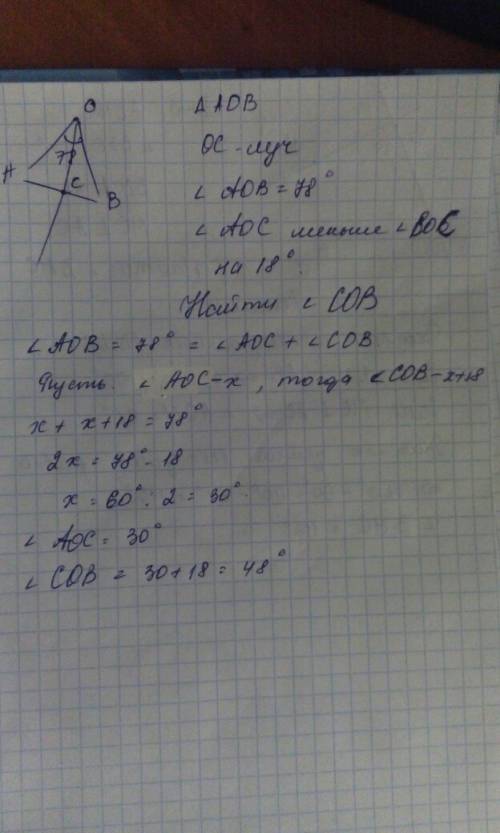 O
A
78
C
B
Δ AOB
OC - луч
∠ AOB = 78°
∠ AOC меньше ∠ BOC
на 18°.
Найти ∠ COB
∠ AOB = 78° = ∠ AOC + ∠ COB
Пусть. ∠ AOC - x , тогда ∠ COB - x+18
x + x + 18 = 78°
2x = 78° - 18
x = 60° : 2 = 30°.
∠ AOC = 30°
∠ COB = 30 + 18 = 48°